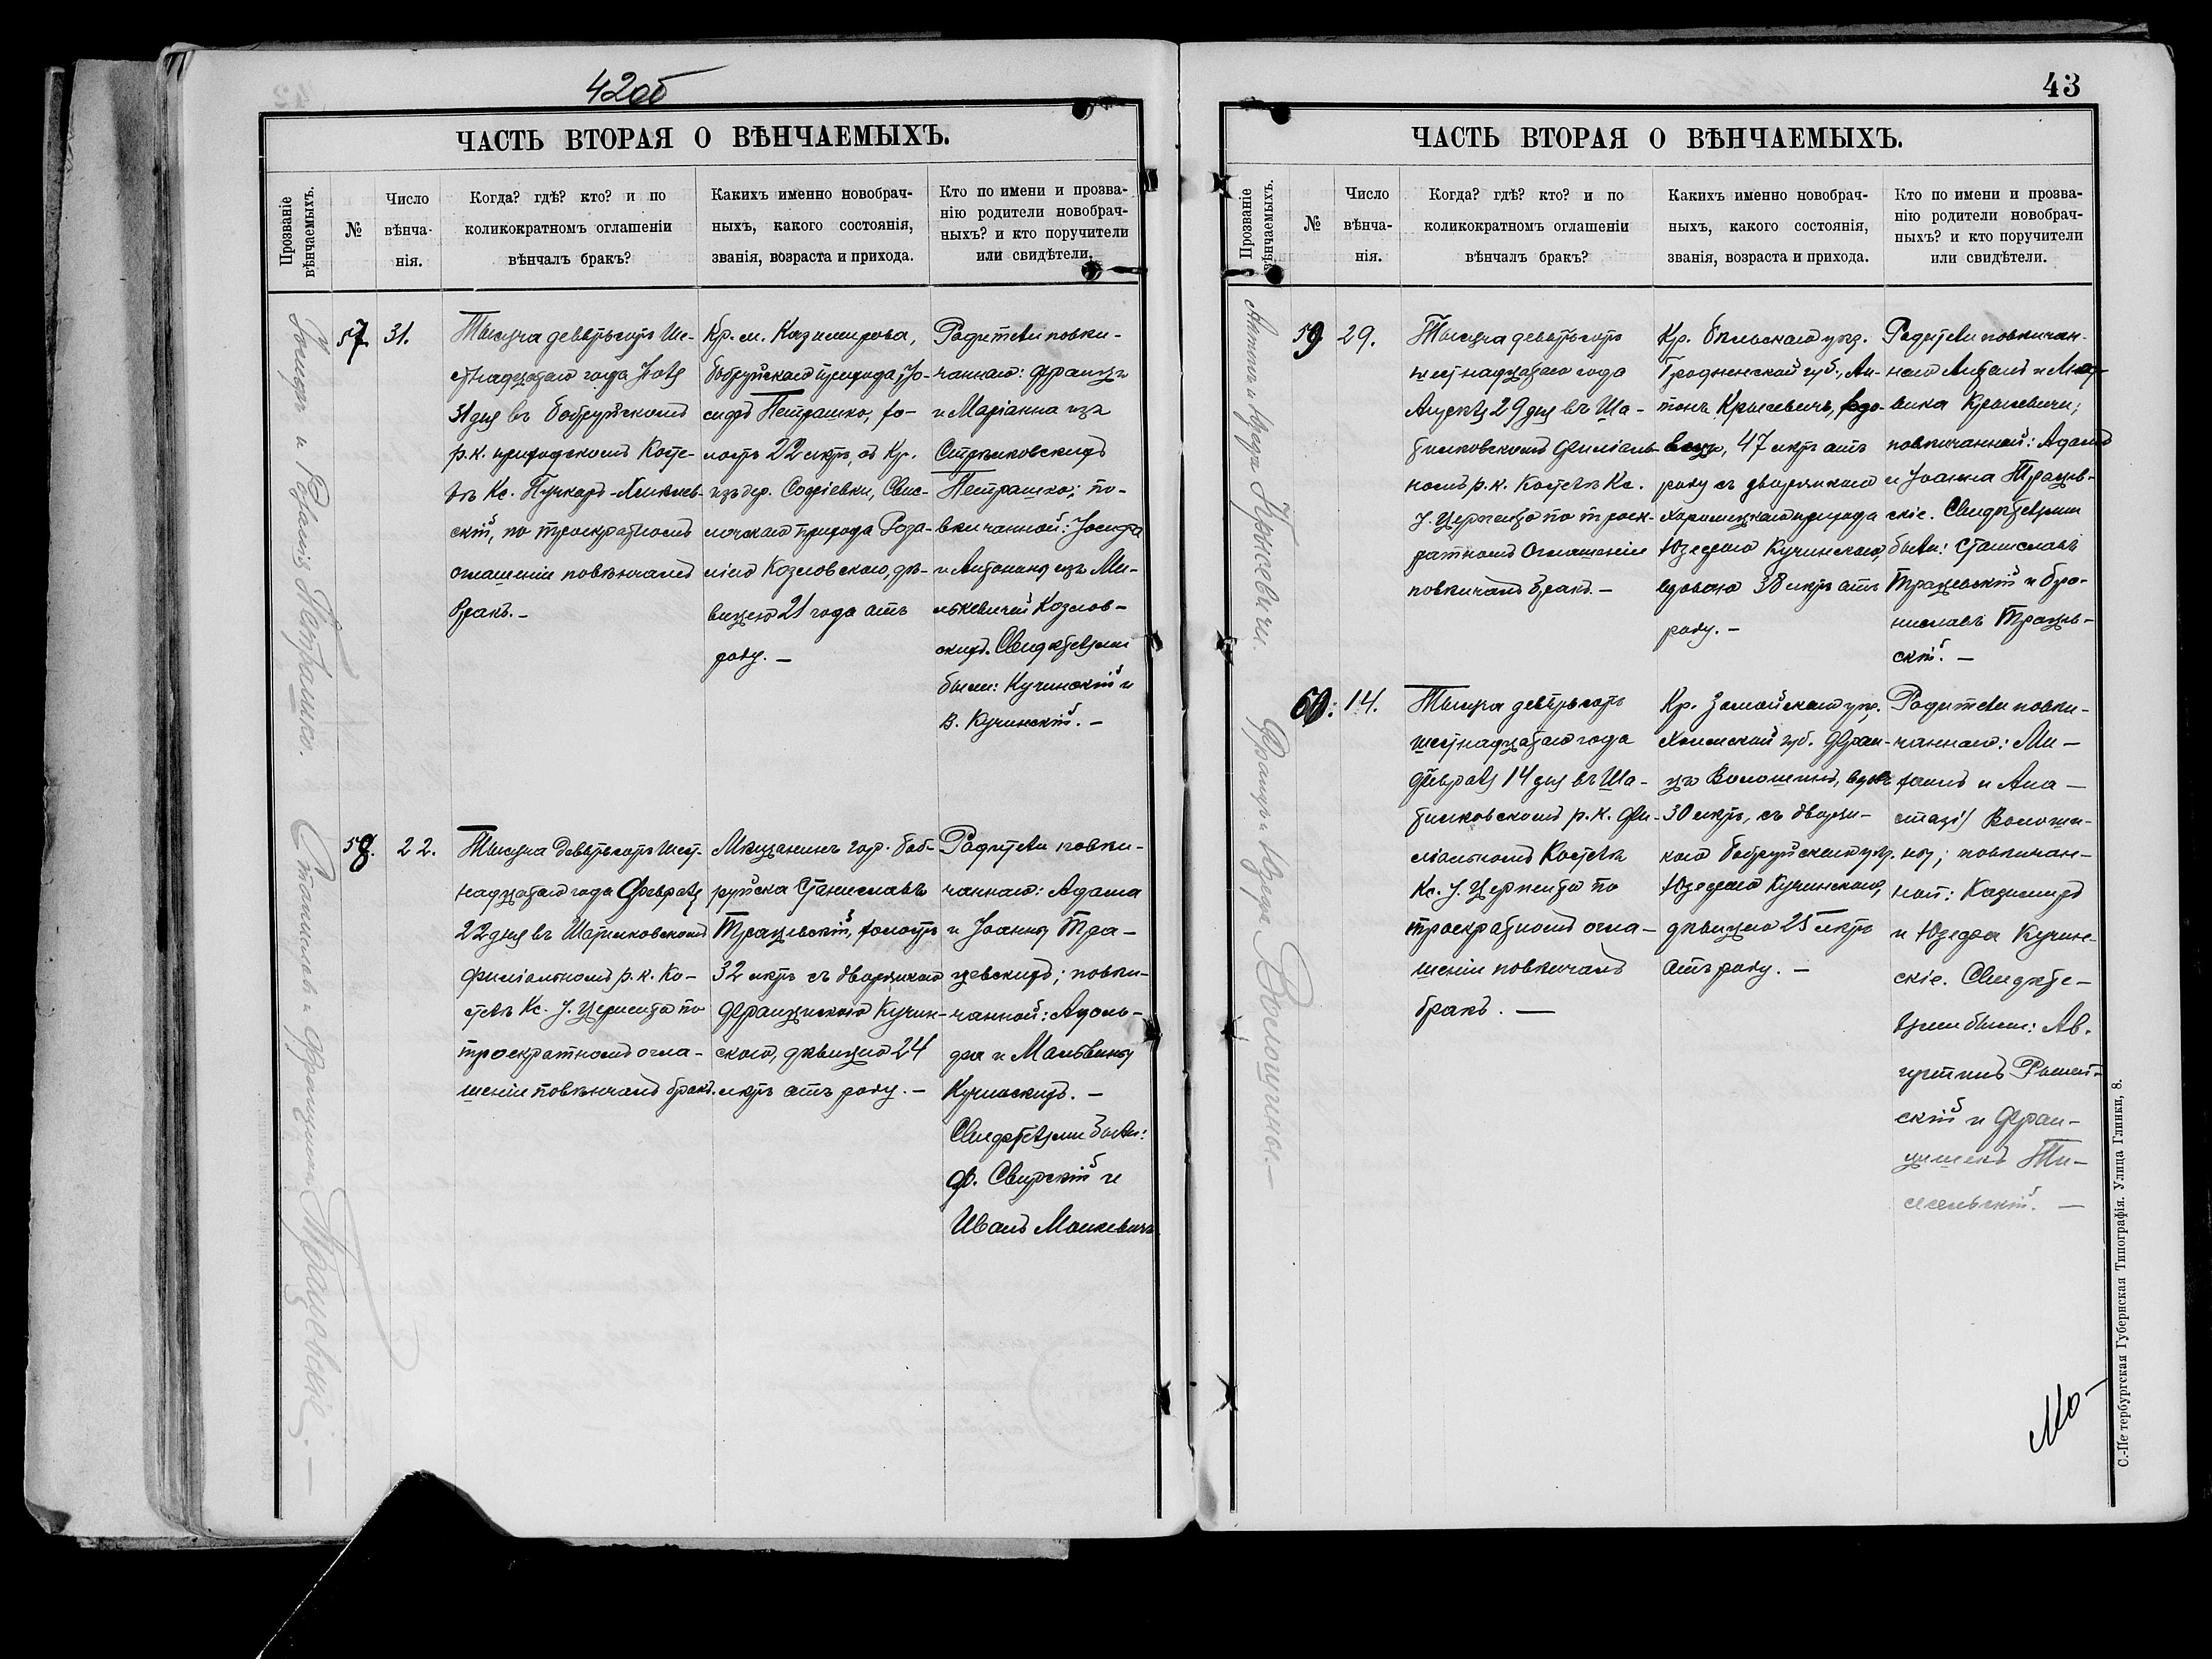 42об
ЧАСТЬ ВТОРАЯ О ВѢНЧАЕМЫХЪ.
Прозваніе
вѣнчаемыхъ.
№
Число
вѣнча-
нія.
Когда? гдѣ? кто? и по
коликократномъ оглашеніи
вѣнчалъ бракъ?
Какихъ именно новобрач-
ныхъ, какого состоянія,
званія, возраста и прихода.
Кто по имени и прозва-
нію родители новобрач-
ныхъ? и кто поручители
или свидѣтели.
Іосифъ и Розалія Петрашко.
57
31.
Тысяча девятьсотъ ше-
стнадцатаго года Іюля
31 дня въ Бобруйскомъ
р.к. приходскомъ Косте-
лѣ Кс.
скій, по троекратномъ
оглашеніи повѣнчалъ
бракъ. –
Кр. м. Казимирова,
Бобруйскаго прихода, Іо-
сифъ Петрашко, хо-
лостъ 22 лѣтъ, съ Кр.
изъ дер. Софіевки, Свис-
лочскаго прихода Роза-
ліею Козловскою, дѣ-
вицею 21 года отъ
роду. –
Родители повѣн-
чаннаго: Францъ
и Маріанна изъ
Стрѣлковскихъ
Петрашко; по-
вѣнчанной: Іосифа
и Антонины изъ Ми-
лькевичей Козлов-
скихъ. Свидѣтелями
были: Кучинскій и
В. Кучинскій. –
Станиславъ и Францишка Трацевскіе. –
58.
22.
Тысяча девятьсотъ шест-
надцатаго года Февраля
22 дня въ Шатилковскомъ
филіальномъ р. к. Ко-
стелѣ Кс. І. Цермито по
троекратномъ огла-
шеніи повѣнчалъ бракъ.
Мѣщанинъ гор. Боб-
руйска Станиславъ
Трацевскій, холостъ
32 лѣтъ съ дворянкою
Францишкою Кучин-
скою, дѣвицею 24
лѣтъ отъ роду. –
Родители повѣн-
чаннаго: Адама
и Іоанны Тра-
цевскихъ; повѣн-
чанной: Адоль-
фа и Мальвины
Кучинскихъ. –
Свидѣтелями были:
Ф. Свирскій и
Иванъ
43
ЧАСТЬ ВТОРАЯ О ВѢНЧАЕМЫХЪ.
Прозваніе
вѣнчаемыхъ.
№
Число
вѣнча-
нія.
Когда? гдѣ? кто? и по
коликократномъ оглашеніи
вѣнчалъ бракъ?
Какихъ именно новобрач-
ныхъ, какого состоянія,
званія, возраста и прихода.
Кто по имени и прозва-
нію родители новобрач-
ныхъ? и кто поручители
или свидѣтели.
Антонъ и Юзефа Крысевичи.
59
29.
Тысяча девятьсотъ
шестнадцатаго года
Апрѣля 29 дня въ Ша-
тилковскомъ Филіаль-
номъ р.к. Костелѣ Кс.
І. Цермито по троек-
ратномъ Оглашеніи
повѣнчалъ бракъ. –
Кр. Бѣльскаго уѣзд.
Гродненской губ., Ан-
тонъ Крысевичъ, вдо-
вецъ, 47 лѣтъ отъ
роду съ дворянкою
прихода
Юзефою Кучинскою,
вдовою 38 лѣтъ отъ
роду. –
Родители повѣнчан-
наго
Крысевичи;
повѣнчанной: Адамъ
и Іоанна Трацев-
скіе. Свидѣтелями
были: Станиславъ
Трацевскій и Бро-
ниславъ Трацев-
скій. –
Францъ и Юзефа Волошины. –
60.
14.
Тысяча девятьсотъ
шестнадцатаго года
Февраля 14 дня въ Ша-
тилковскомъ р.к. Фи-
ліальномъ Костелѣ
Кс. І. Цермито по
троекратномъ огла-
шеніи повѣнчалъ
бракъ. –
Кр. Замойскаго уѣз.
Холмской губ. Фран-
цъ Волошинъ,
30 лѣтъ, съ дворян-
кою Бобруйскаго уѣз.
Юзефою Кучинскою,
дѣвицею 25 лѣтъ
отъ роду. –
Родители повѣн-
чаннаго: Ми-
хаилъ и Ана-
стазія Волоши-
ны; повѣнчан-
ной: Казимиръ
и Юзефа Кучин-
скіе. Свидѣте-
лями были: Ав-
густинъ
скій и Фран-
цишекъ
Мо-
С.-Петербургская Губернская Типографія. Улица Глинки, 8.